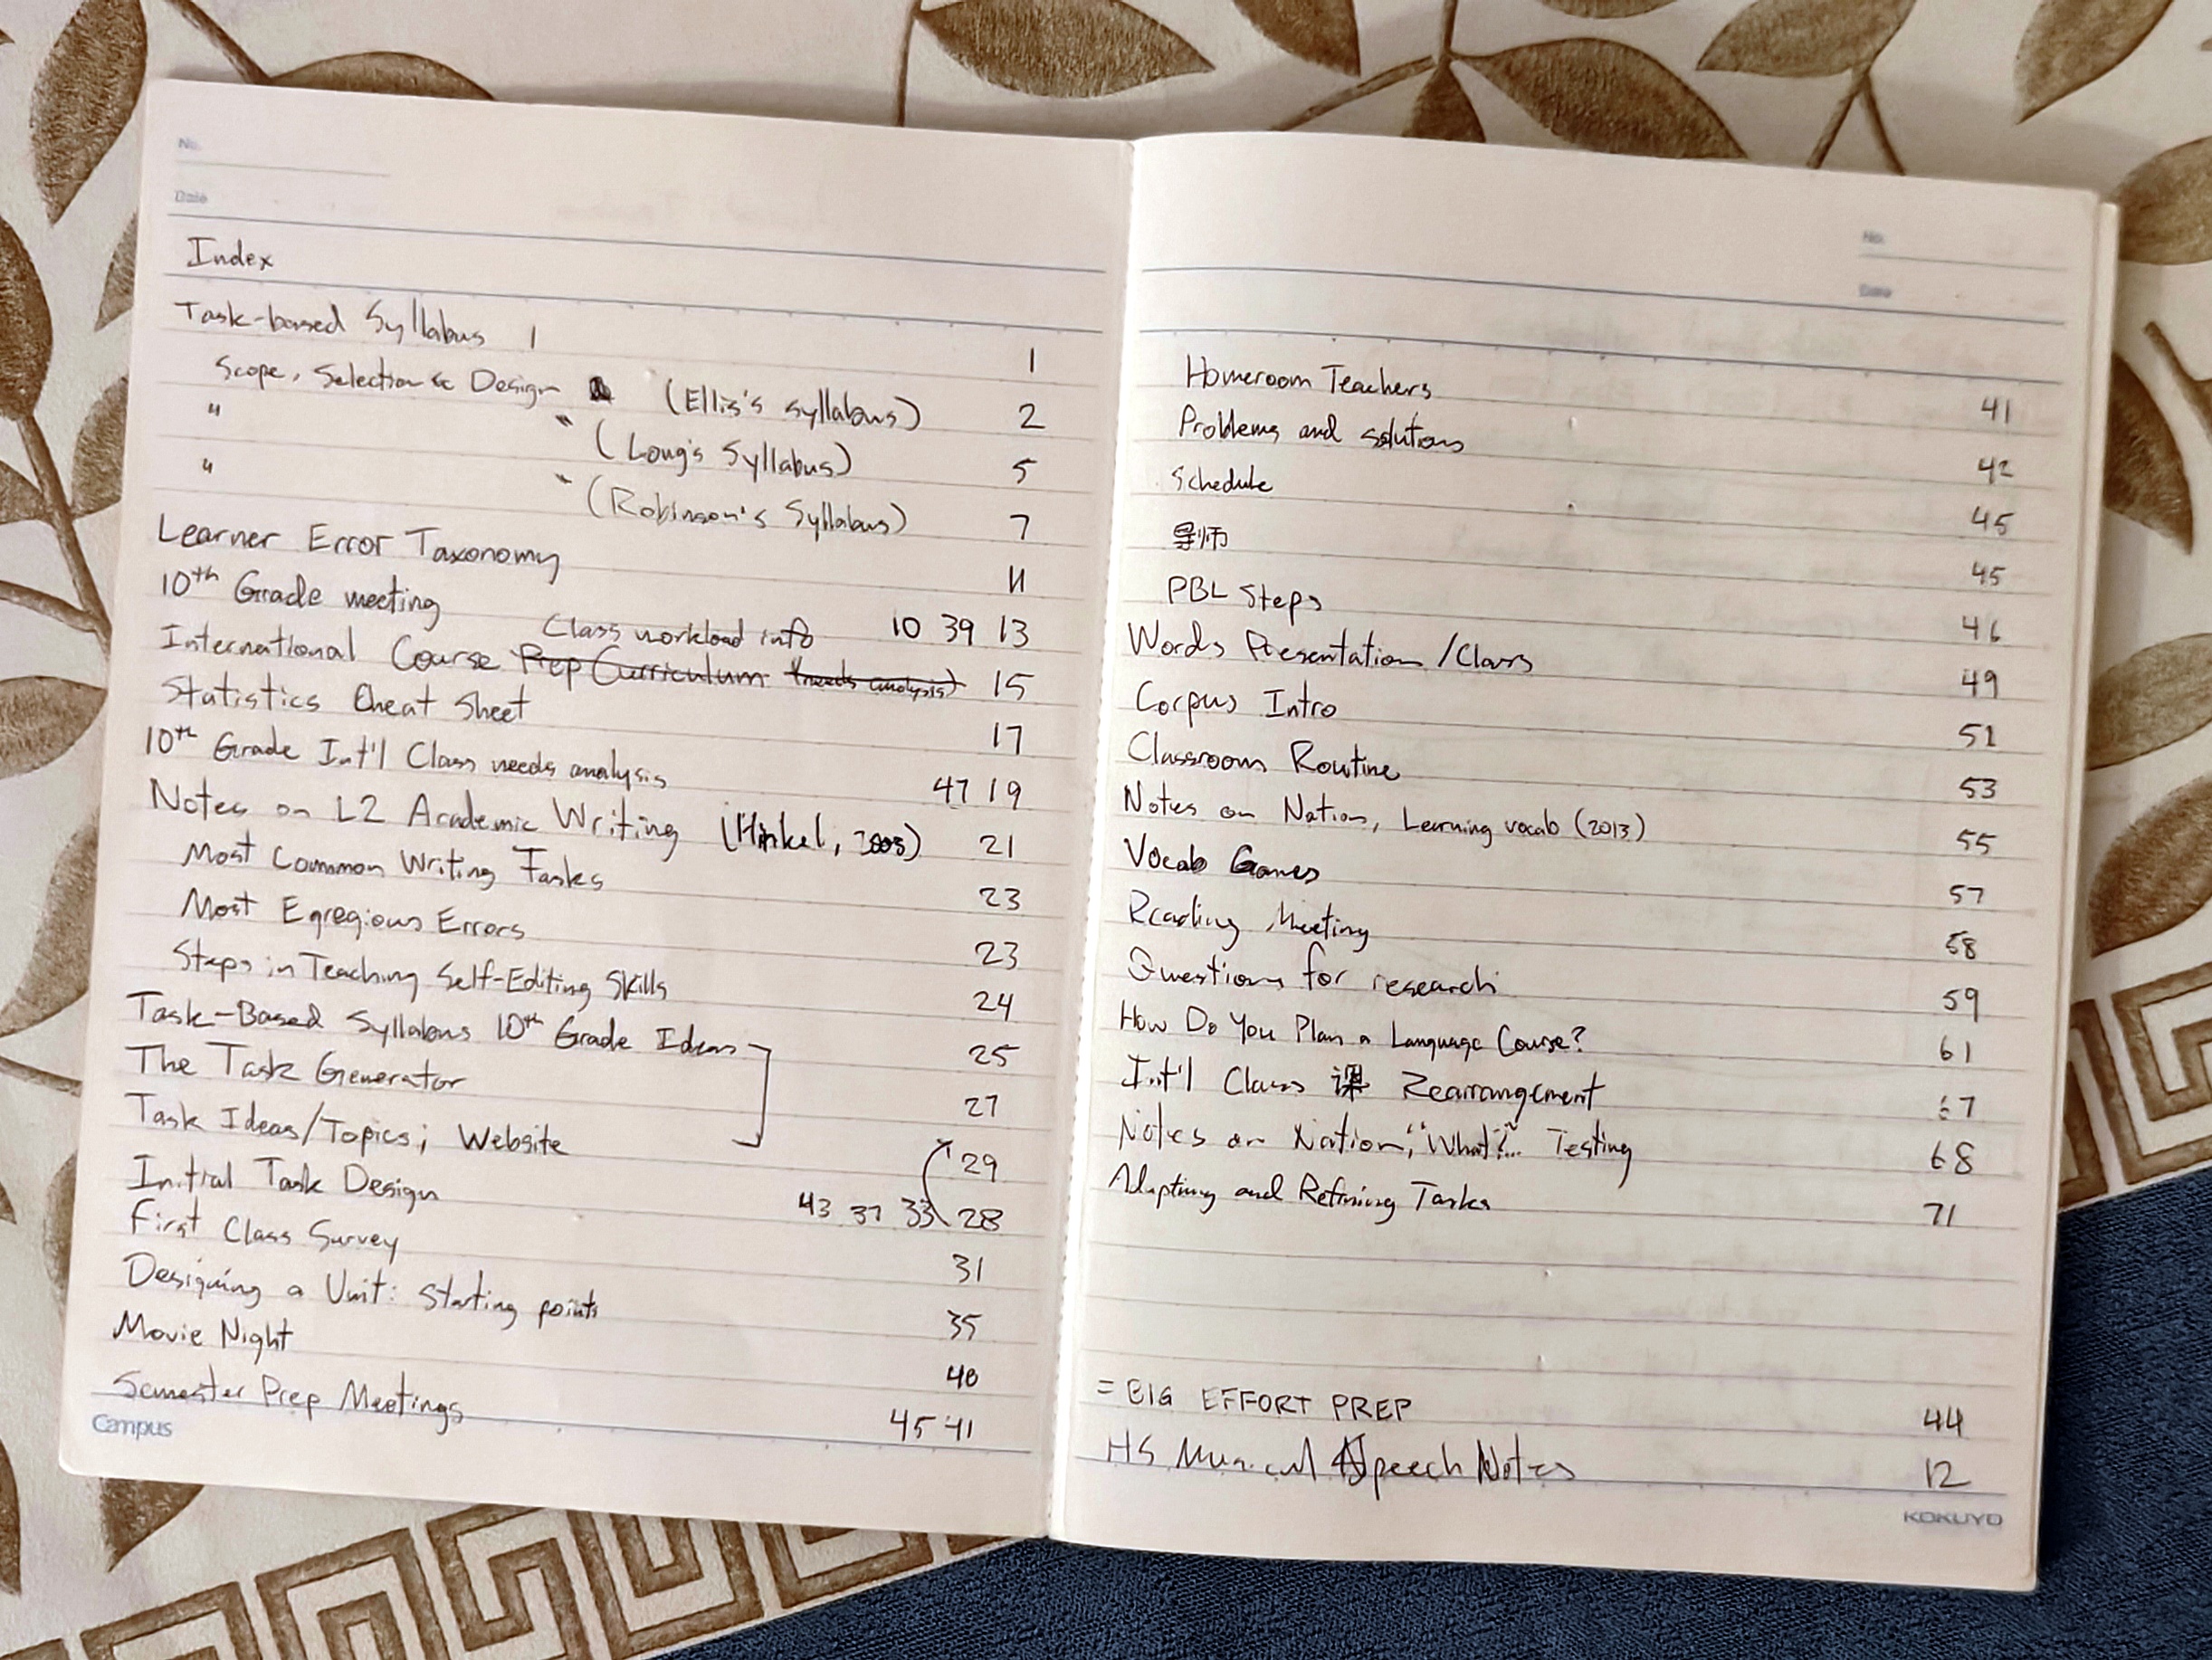 No.
Date
Index
Task-based Syllabus 1 1
Scope, Selection & Design (Ellis's syllabus) 2
" " (Long's Syllabus) 5
" " (Robinson's Syllabus) 7
Learner Error Taxonomy 11
10th Grade meeting 10 39 13
Class workload info
International Course Prep Curriculum (needs analysis) 15
Statistics Cheat Sheet 17
10th Grade Int'l Class needs analysis 47 19
Notes on L2 Academic Writing (Hinkel, ) 21
Most Common Writing Tasks 23
Most Egregious Errors 23
Steps in Teaching Self-Editing Skills 24
Task-Based Syllabus 10th Grade Ideas 25
The Task Generator 27
Task Ideas/Topics; Website 29
Initial Task Design 43 37 33 28
First Class Survey 31
Designing a Unit: starting points 35
Movie Night 40
Semester Prep Meetings 45 41
Campus
No.
Date
Homeroom Teachers 41
Problems and solutions 42
Schedule 45
导师 45
PBL Steps 46
Words Presentation /Class 49
Corpus Intro 51
Classroom Routine 53
Notes on Nation, Learning vocab (2013) 55
Vocab Games 57
Reading Meeting 58
Questions for research 59
How Do You Plan a Language Course? 61
Int'l Class 课 Rearrangement 67
Notes on Nation, "What?"... Testing 68
Adapting and Refining Tasks 71
= BIG EFFORT PREP 44
HS Musical Speech Notes 12
KOKUYO